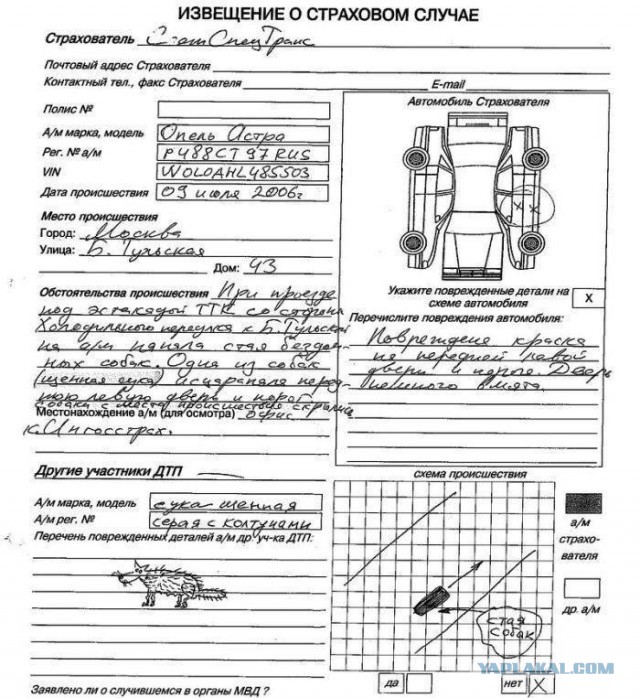 ИЗВЕЩЕНИЕ О СТРАХОВОМ СЛУЧАЕ
Страхователь СпецТранс
Почтовый адрес Страхователя
Контактный тел., факс Страхователя E-mail
Полис №
А/м марка, модель Опель Астра
Рег. № а/м Р488СТ97RUS
VIN W0L0AHL485503
Дата происшествия 09 июля 2006г
Место происшествия
Город: Москва
Улица: Б. Тульская
Дом: 43
Обстоятельства происшествия При проезде
под эстакадой ТТК со стороны
Холодильного переулка к Б.Тульской
на а/м напала стая бездом-
ных собак. Одна из собак
(щенная сука) исцарапала перед-
нюю левую дверь и порог.
Собаки с места происшествия скрылись
Местонахождение а/м (для осмотра) Офис
к. Ингосстрах.
Автомобиль Страхователя
Укажите поврежденные детали на
схеме автомобиля
X
Перечислите повреждения автомобиля:
Повреждена краска
на передней левой
двери и пороге. Дверь
немного вмята.
Другие участники ДТП
А/м марка, модель сука щенная
А/м рег. № серая с колтунами
Перечень поврежденных деталей а/м др. уч-ка ДТП:
схема происшествия
стая
собак
а/м
страхо-
вателя
др. а/м
Заявлено ли о случившемся в органы МВД ? да нет X
YAPLAKAL.COM